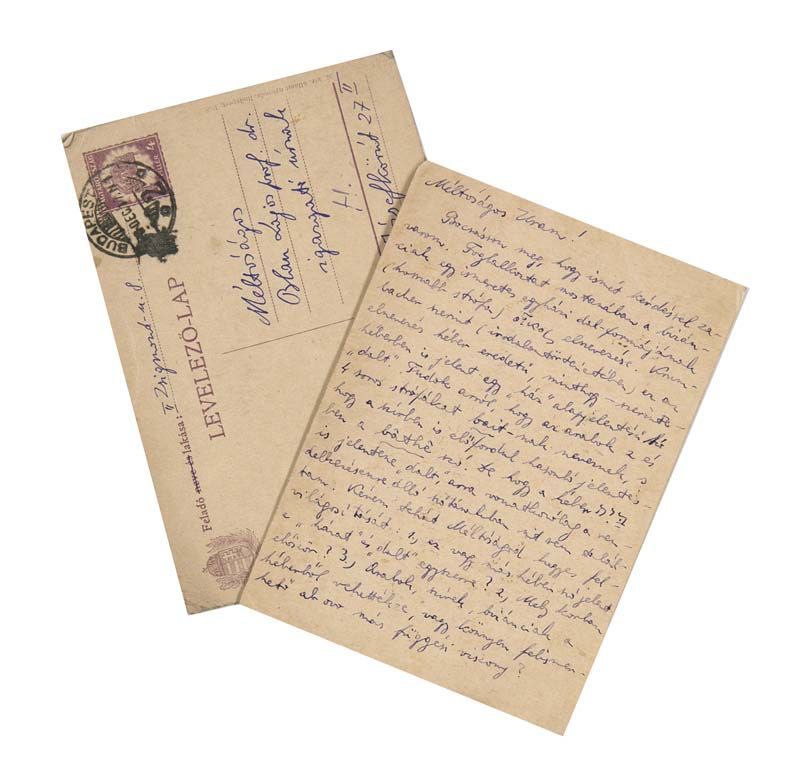 BUDAPEST
Feladó neve és lakása: II Zsigmond-u. 8.
LEVELEZŐ-LAP
Méltóságos
Blau Lajos prof. dr.
igazgató úrnak
27 II
Méltóságos Uram!
Bocsásson meg, hogy ismét kérdéssel za-
varom. Foglalkoztat mostanában a bizán-
ciak egy ismeretes egyházi dal-formájának
(hosszabb strófa) οἶκος elnevezése. Krum-
bacher szerint (irodalomtörténetében) ez az
elnevezés héber eredetű, minthogy - szerinte -
héberben is jelent egy "ház" alapjelentésű szó
"dalt". Tudok arról, hogy az arabok 2 és
4 soros strófákat bait-nak neveznek, s
hogy a szírben is előfordul hasonló jelentés-
ben a szó: de hogy a héber
is jelentene "dalt", arra vonatkozólag a ren-
delkezésemre álló szótárakban mit sem talál-
tam. Kérem tehát Méltóságod kegyes fel-
világosítását. 1, ez vagy más héber szó jelent-e
"házat" és "dalt" egyszerre? 2, Mely korban
először? 3, Arabok, szírek, bizánciak a
héberből vehették-e, vagy könnyen felismer-
hető ab ovo más függési viszony?